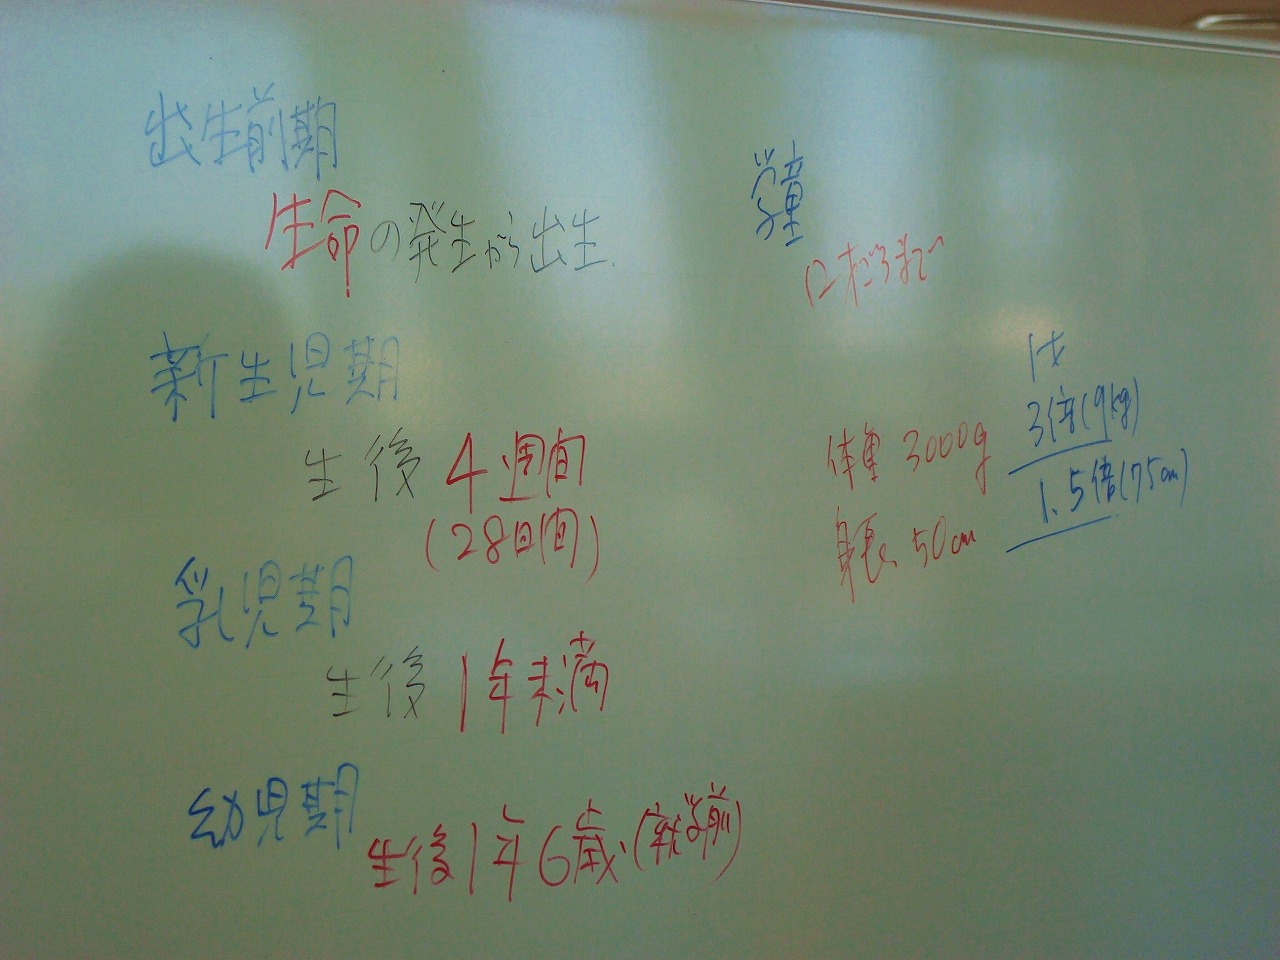 出生前期
生命の発生から出生
新生児期
生後 4週間
(28日間)
乳児期
生後 1年未満
幼児期
生後1年 6歳(就学前)
学童
12才ごろまで
1才
体重 3000g 3倍(9kg)
身長 50cm 1.5倍(75cm)